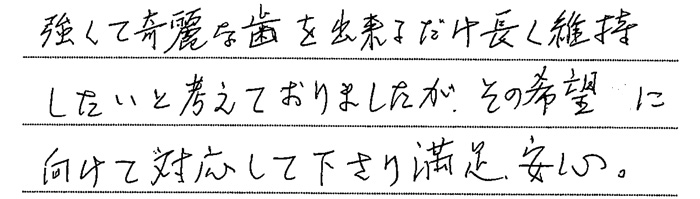 強くて奇麗な歯を出来るだけ長く維持
したいと考えておりましたが、その希望に
向けて対応して下さり満足、安心。